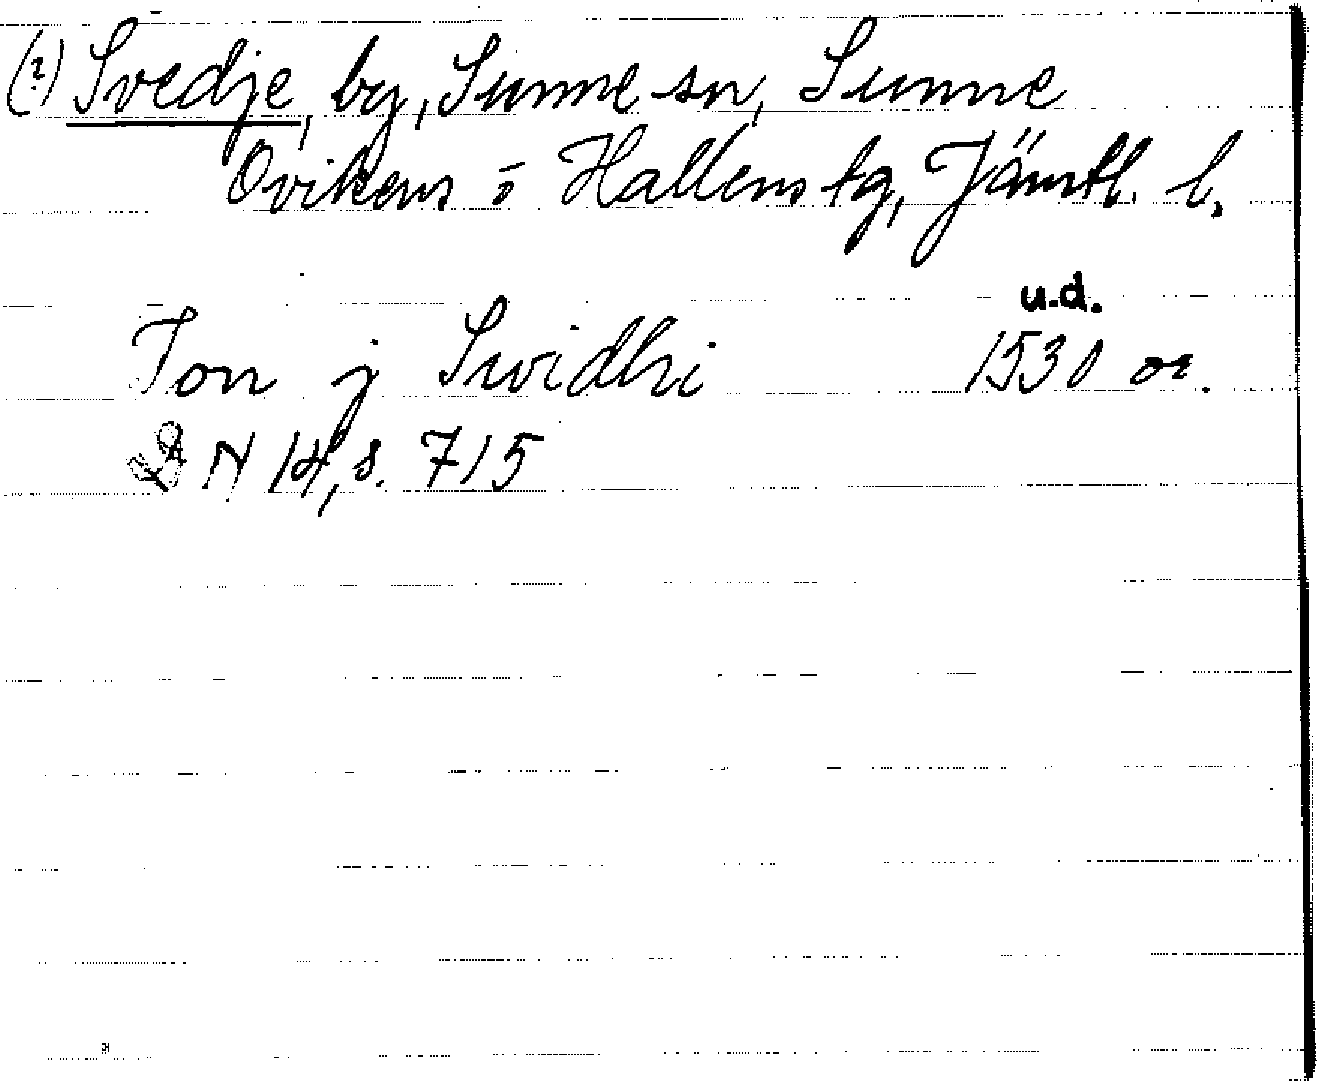 (?) Svedje, by, Sunne sn, Sunne
Ovikens o Hallens tg, Jämtl. l.
u.d.
Jon j Swidhi 1530 or.
N 14, s. 715